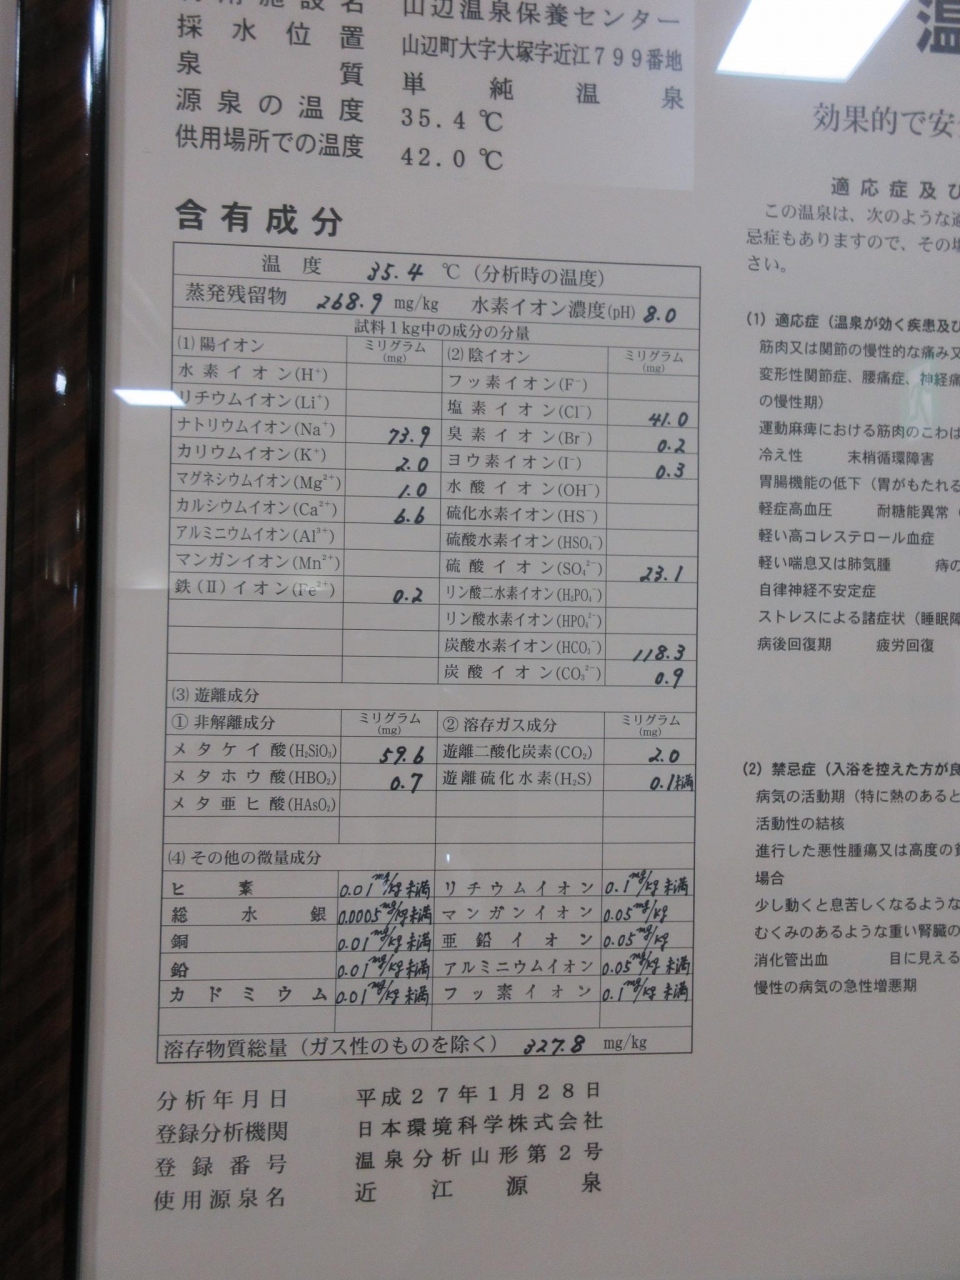 山辺温泉保養センター
採水位置 山辺町大字大塚字近江799番地
泉質 単純温泉
源泉の温度 35.4℃
供用場所での温度 42.0℃
含有成分
温度 35.4 ℃ (分析時の温度)
蒸発残留物 268.9 mg/kg 水素イオン濃度(pH) 8.0
試料1kg中の成分の分量
(1) 陽イオン ミリグラム(mg) (2) 陰イオン ミリグラム(mg)
水素イオン(H⁺) フッ素イオン(F⁻)
リチウムイオン(Li⁺) 塩素イオン(Cl⁻) 41.0
ナトリウムイオン(Na⁺) 73.9 臭素イオン(Br⁻) 0.2
カリウムイオン(K⁺) 2.0 ヨウ素イオン(I⁻) 0.3
マグネシウムイオン(Mg²⁺) 1.0 水酸イオン(OH⁻)
カルシウムイオン(Ca²⁺) 6.6 硫化水素イオン(HS⁻)
アルミニウムイオン(Al³⁺) 硫酸水素イオン(HSO₄⁻)
マンガンイオン(Mn²⁺) 硫酸イオン(SO₄²⁻) 23.1
鉄(II)イオン(Fe²⁺) 0.2 リン酸二水素イオン(H₂PO₄⁻)
リン酸水素イオン(HPO₄²⁻)
炭酸水素イオン(HCO₃⁻) 118.3
炭酸イオン(CO₃²⁻) 0.9
(3) 遊離成分
① 非解離成分 ミリグラム(mg) ② 溶存ガス成分 ミリグラム(mg)
メタケイ酸(H₂SiO₃) 59.6 遊離二酸化炭素(CO₂) 2.0
メタホウ酸(HBO₂) 0.7 遊離硫化水素(H₂S) 0.1未満
メタ亜ヒ酸(HAsO₂)
(4) その他の微量成分
ヒ素 0.01mg/kg未満 リチウムイオン 0.1mg/kg未満
総水銀 0.0005mg/kg未満 マンガンイオン 0.05mg/kg
銅 0.01mg/kg未満 亜鉛イオン 0.05mg/kg
鉛 0.01mg/kg未満 アルミニウムイオン 0.05mg/kg未満
カドミウム 0.01mg/kg未満 フッ素イオン 0.1mg/kg未満
溶存物質総量(ガス性のものを除く) 327.8 mg/kg
分析年月日 平成27年1月28日
登録分析機関 日本環境科学株式会社
登録番号 温泉分析山形第2号
使用源泉名 近江源泉
温
効果的で安
適応症及び
この温泉は、次のような
忌症もありますので、その
さい。
(1) 適応症(温泉が効く疾患及び
筋肉又は関節の慢性的な痛み又
変形性関節症、腰痛症、神経痛
の慢性期)
運動麻痺における筋肉のこわば
冷え性 末梢循環障害
胃腸機能の低下(胃がもたれる
軽症高血圧 耐糖能異常(
軽い高コレステロール血症
軽い喘息又は肺気腫 痔の
自律神経不安定症
ストレスによる諸症状(睡眠障
病後回復期 疲労回復
(2) 禁忌症(入浴を控えた方が良
病気の活動期(特に熱のあると
活動性の結核
進行した悪性腫瘍又は高度の貧
場合
少し動くと息苦しくなるような
むくみのあるような重い腎臓の
消化管出血 目に見える
慢性の病気の急性増悪期